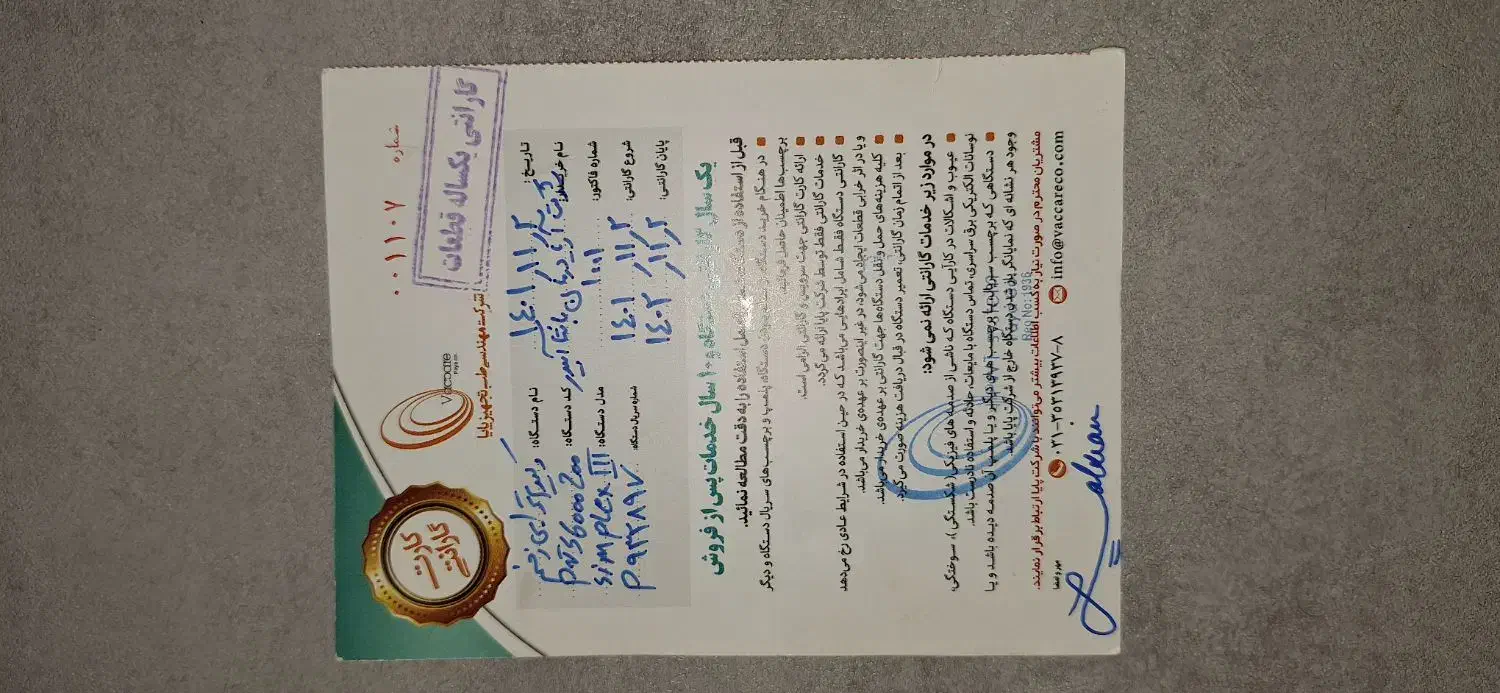 شماره ۰۰۱۱۰۷
گارانتی یکساله قطعات
کارت گارانتی
vaccare
Paya co.
شرکت مهندسی طب تجهیز پایا
تاریخ: ۱۴۰۱/۱۱/۲
نام خریدار:
شماره فاکتور: ۱۰۰۱
شروع گارانتی: ۱۴۰۱/۱۱/۲
پایان گارانتی: ۱۴۰۲/۱۱/۲
نام دستگاه:
کد دستگاه: PNS6000200
مدل دستگاه: Simplex III
شماره سریال دستگاه:
یک سال گارانتی دستگاه و ۱۰ سال خدمات پس از فروش
قبل از استفاده از دستگاه دستورالعمل استفاده را به دقت مطالعه نمائید.
در هنگام خرید دستگاه از سالم بودن دستگاه، پلمپ و برچسب‌های سریال دستگاه و دیگر
برچسب‌ها اطمینان حاصل فرمائید.
ارائه کارت گارانتی جهت سرویس و گارانتی الزامی است.
خدمات گارانتی فقط توسط شرکت پایا ارائه می‌گردد.
گارانتی دستگاه فقط شامل ایرادهایی می‌باشد که در حین استفاده در شرایط عادی رخ می‌دهد
و یا در اثر خرابی قطعات ایجاد می‌شود، در غیر اینصورت بر عهده‌ی خریدار می‌باشد.
کلیه هزینه‌های حمل و نقل دستگاه‌ها جهت گارانتی بر عهده‌ی خریدار می‌باشد.
بعد از اتمام زمان گارانتی، تعمیر دستگاه در قبال دریافت هزینه صورت می‌گیرد.
در موارد زیر خدمات گارانتی ارائه نمی شود:
عیوب و اشکالات در کارایی دستگاه که ناشی از صدمه های فیزیکی( شکستگی)، سوختگی،
نوسانات الکتریکی برق سراسری، تماس دستگاه با مایعات، حادثه و استفاده نادرست باشد.
دستگاهی که برچسب سریال، یا برچسب های دیگر و یا پلمپ آن صدمه دیده باشد و یا
وجود هر نشانه ای که نمایانگر باز شدن دستگاه خارج از شرکت پایا باشد.
Reg No: 1936
مشتریان محترم در صورت نیاز به کسب اطلاعات بیشتر می‌توانند با شرکت پایا ارتباط برقرار نمایند.
۰۳۱-۳۵۳۱۳۹۳۷-۸ info@vaccareco.com
مهر و امضا